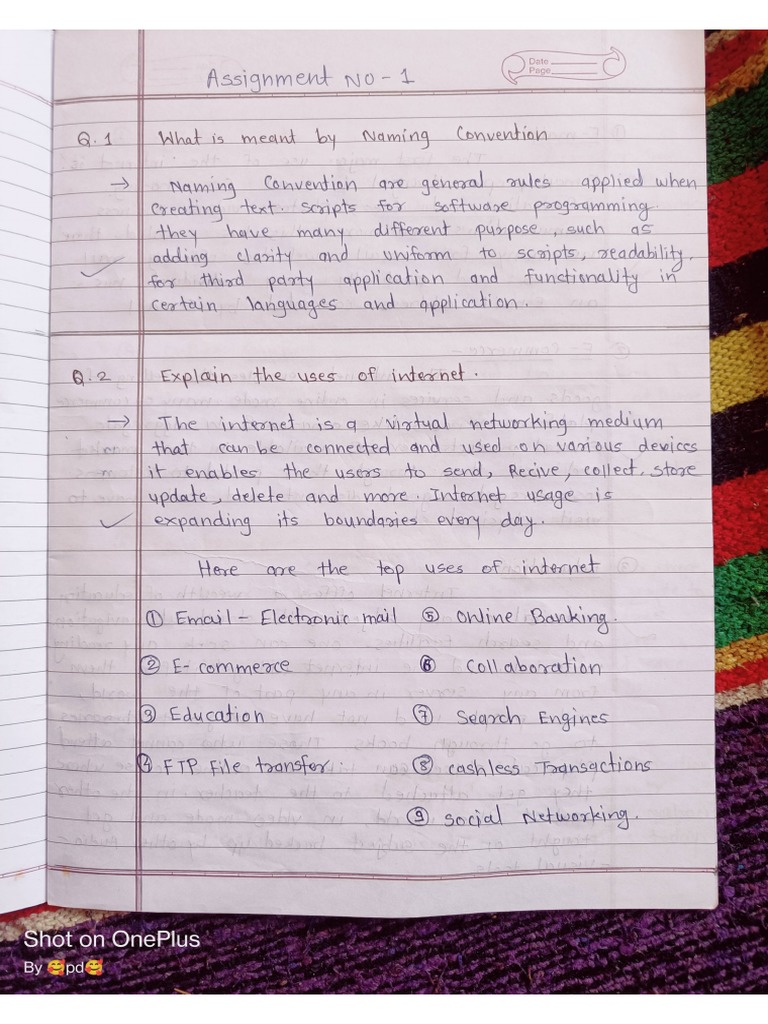 Assignment NO - 1
Date
Page
Q.1 What is meant by Naming Convention
→ Naming Convention are general rules applied when
creating text. scripts for software programming.
they have many different purpose, such as
adding clarity and uniform to scripts, readability,
for third party application and functionality in
certain languages and application.
Q.2 Explain the uses of internet.
→ The internet is a virtual networking medium
that can be connected and used on various devices
it enables the users to send, Recive, collect, store
update, delete and more. Internet usage is
expanding its boundaries every day.
Here are the top uses of internet
① Email - Electronic mail ⑤ Online Banking.
② E- commerce ⑥ Collaboration
③ Education ⑦ Search Engines
④ FTP File transfer. ⑧ cashless Transactions
⑨ Social Networking.
Shot on OnePlus
By 🥰pd🥰